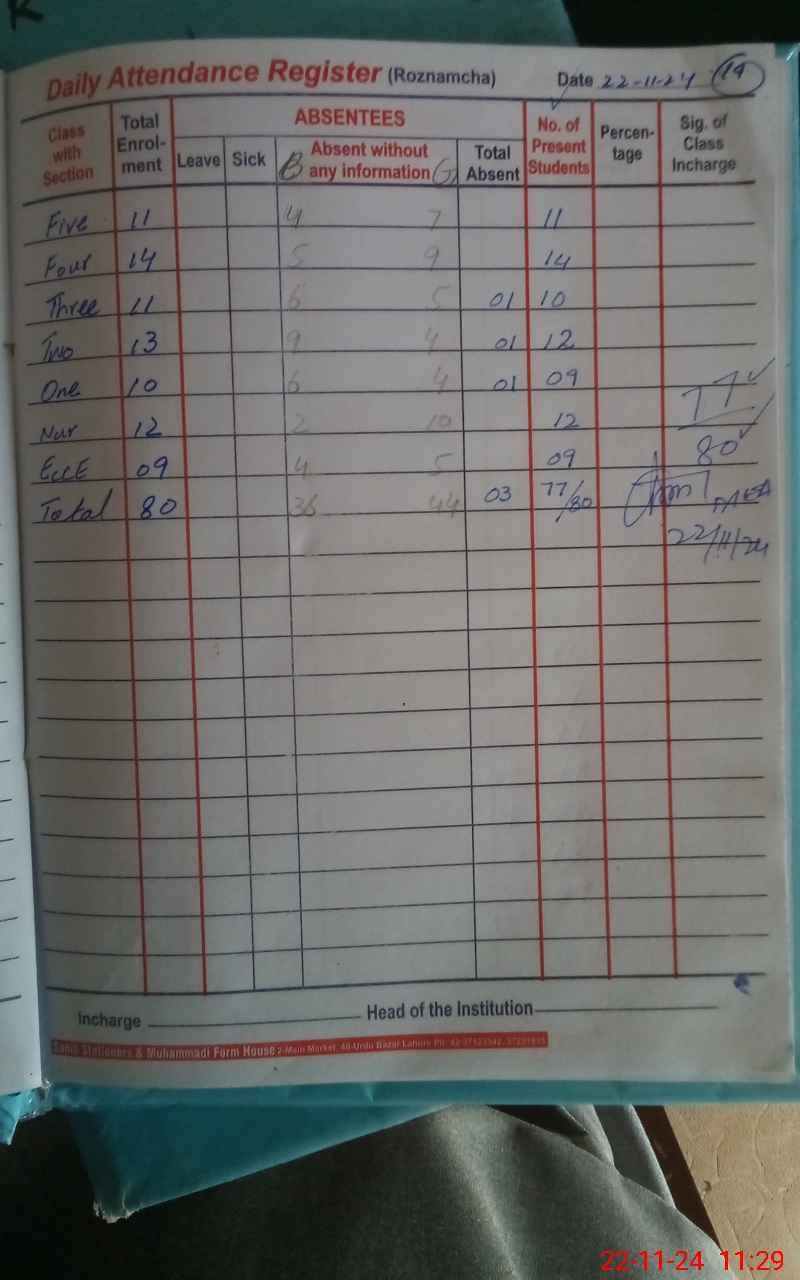 K
Daily Attendance Register (Roznamcha) Date 22-11-24 19
Class with Section Total Enrol-ment ABSENTEES No. of Present Students Percen-tage Sig. of Class Incharge
Leave Sick B Absent without any information G Total Absent
Five 11 4 7 11
Four 14 5 9 14
Three 11 6 5 01 10
Two 13 9 4 01 12
One 10 6 4 01 09
77
Nur 12 2 10 12
80
ECCE 09 4 5 09
Total 80 36 44 03 77/80
22/11/24
Incharge Head of the Institution
Stationers & Muhammadi Form House 2-Main Market, 40-Urdu Bazar Lahore Ph:
22-11-24 11:29